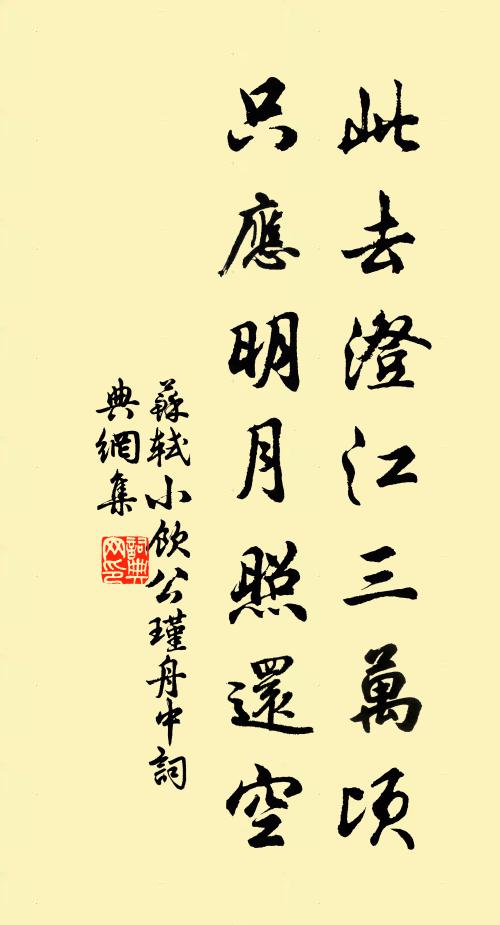 此去澄江三萬頃
只應明月照還空
蘇軾小飲公瑾舟中詞
典網集
詞典網印